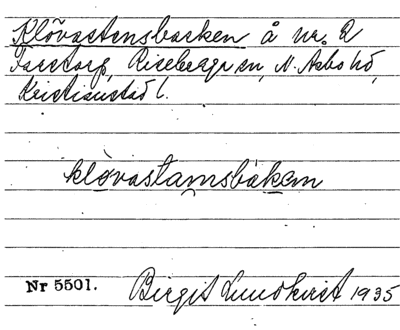 Klövastensbacken å nr. 2
Faretorp, Riseberga sn, N. Åsbo hd,
Kristianstad l.
klövastamsbákam
Nr 5501. Birgit Lundkvist 1935